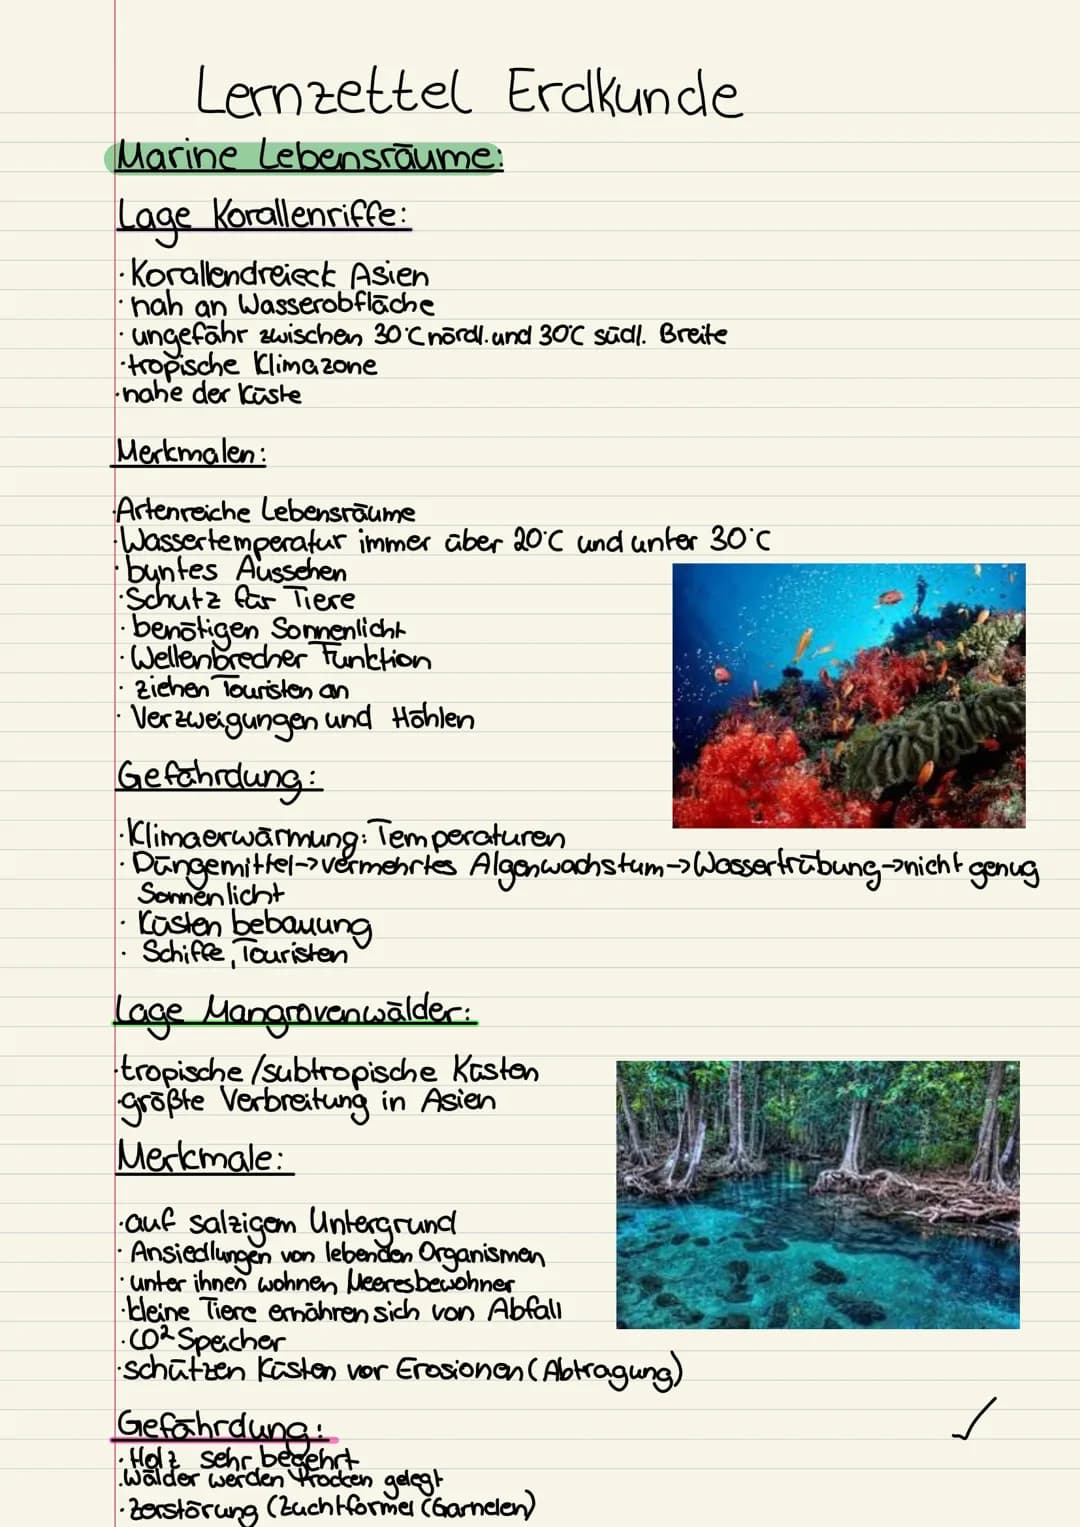 Lernzettel Erdkunde
Marine Lebensräume:
Lage Korallenriffe:
· Korallendreieck Asien
· nah an Wasserobfläche
· ungefähr zwischen 30°C nördl. und 30°C südl. Breite
· tropische Klimazone
· nahe der Küste
Merkmalen:
· Artenreiche Lebensräume
· Wassertemperatur immer über 20°C und unter 30°C
· buntes Aussehen
· Schutz für Tiere
· benötigen Sonnenlicht
· Wellenbrecher Funktion
· ziehen Touristen an
· Verzweigungen und Höhlen
Gefährdung:
· Klimaerwärmung: Temperaturen
· Düngemittel→vermehrtes Algenwachstum→Wassertrübung→nicht genug
Sonnenlicht
· Küsten bebauung
· Schiffe, Touristen
Lage Mangrovenwälder:
· tropische/subtropische Küsten
· größte Verbreitung in Asien
Merkmale:
· auf salzigem Untergrund
· Ansiedlungen von lebenden Organismen
· unter ihnen wohnen Meeresbewohner
· kleine Tiere ernähren sich von Abfall
· CO² Speicher
· schützen Küsten vor Erosionen (Abtragung)
Gefährdung:
· Holz sehr begehrt
· Wälder werden trocken gelegt
· Zerstörung (Zuchtformel (Garnelen)